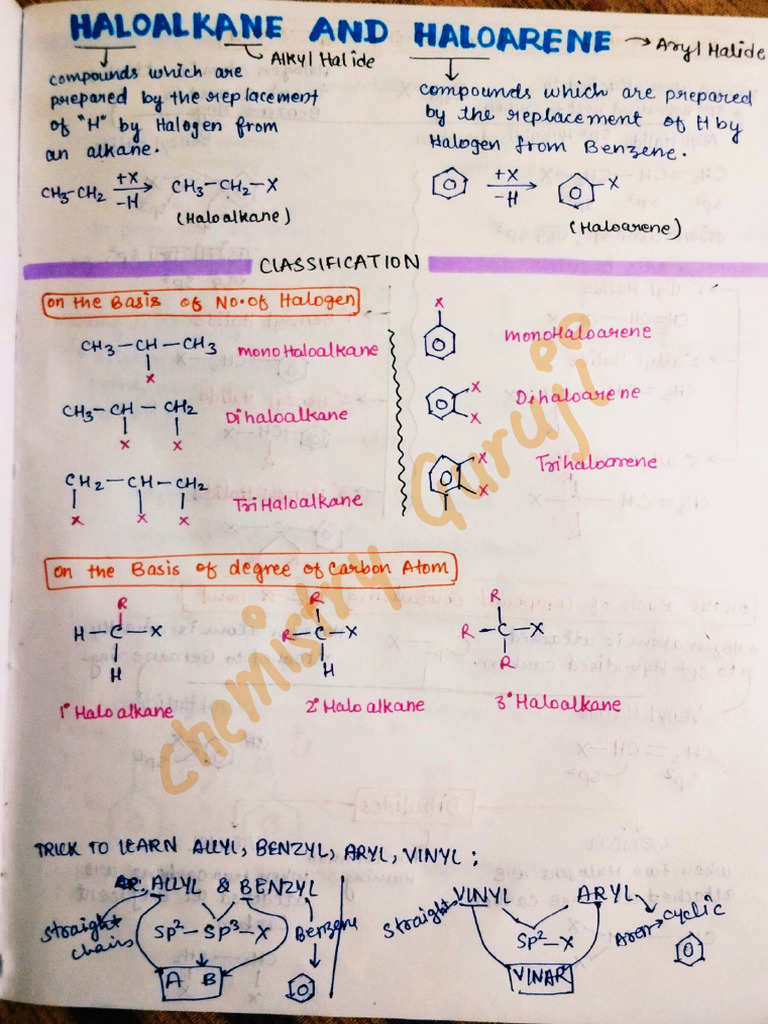 HALOALKANE AND HALOARENE → Aryl Halide
Alkyl Halide
compounds which are
prepared by the replacement
of "H" by Halogen from
an alkane.
CH3-CH2 +X -H → CH3-CH2-X
(Haloalkane)
compounds which are prepared
by the replacement of H by
Halogen from Benzene.
+X -H → X
(Haloarene)
CLASSIFICATION
on the Basis of No. of Halogen
CH3-CH-CH3 monoHaloalkane
X
CH3-CH-CH2 Dihaloalkane
X X
CH2-CH-CH2 TriHaloalkane
X X X
X
monoHaloarene
X
X
Dihaloarene
X
X
Trihaloarene
on the Basis of degree of Carbon Atom
R
H-C-X
H
1° Haloalkane
R
R-C-X
H
2° Haloalkane
R
R-C-X
R
3° Haloalkane
Chemistry Guruji
TRICK TO LEARN ALLYL, BENZYL, ARYL, VINYL ;
ALLYL & BENZYL
straight
chains
Sp2-Sp3-X
Benzene
A B
VINYL ARYL
straight
Sp2-X
cyclic
VINAR